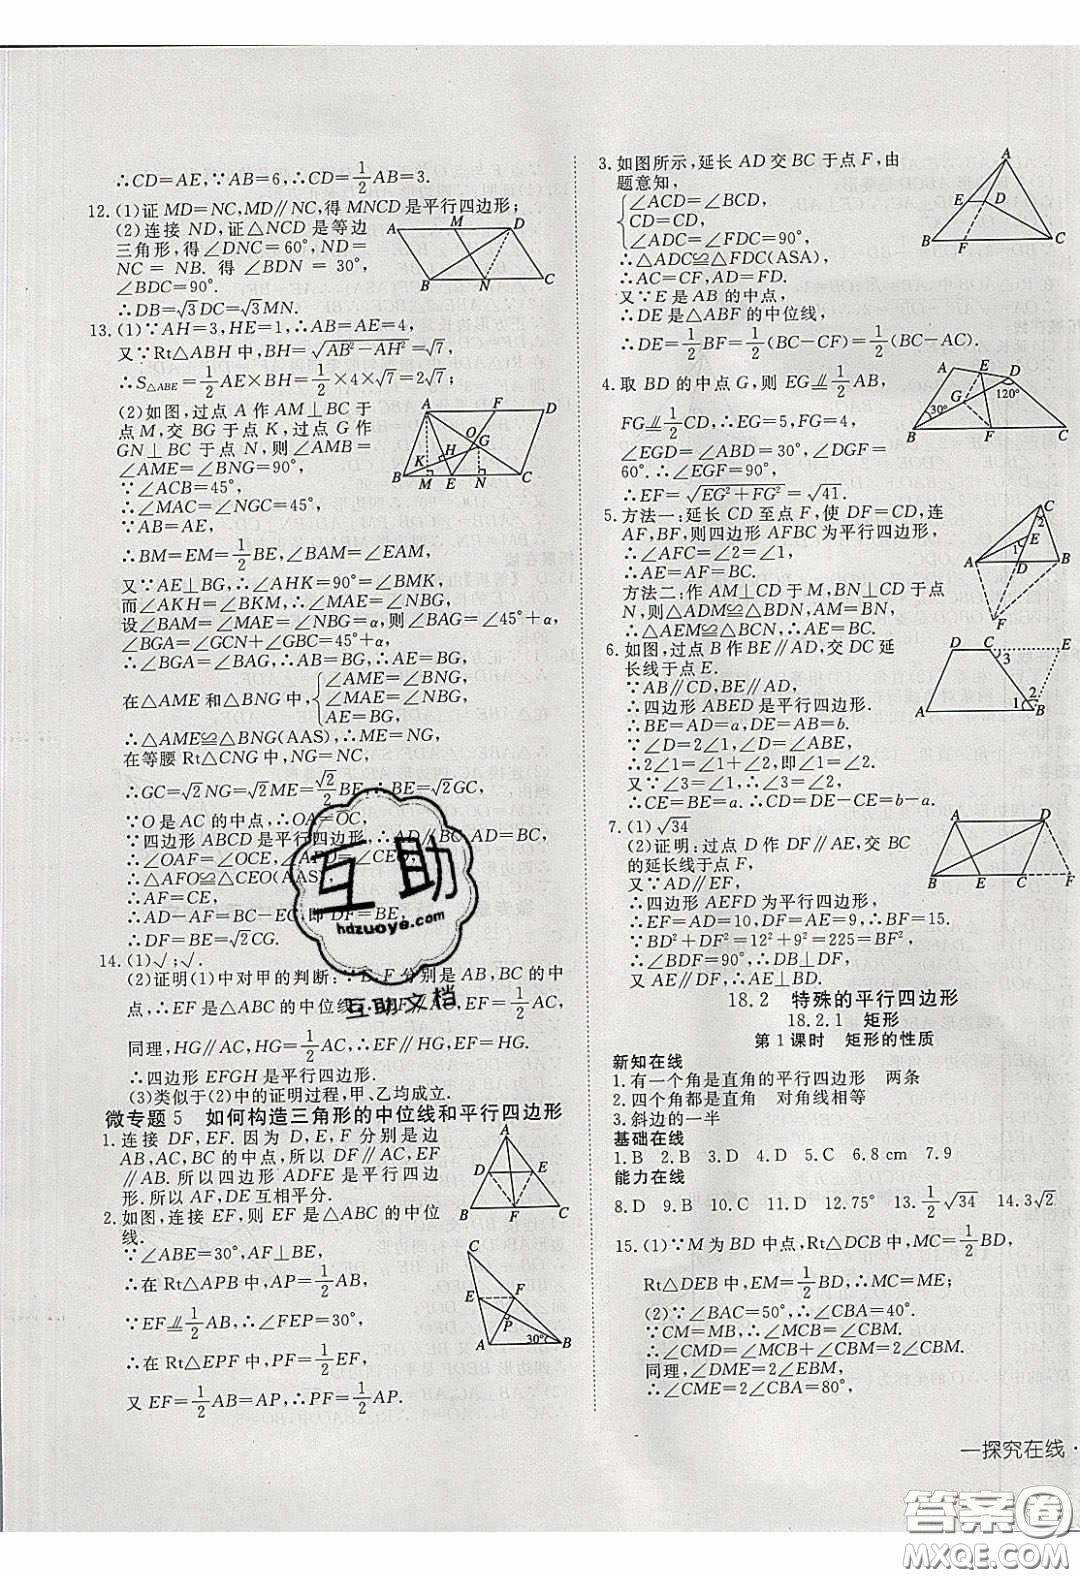 ∴CD=AE,∵AB=6,∴CD=1/2AB=3.
12.(1)证 MD=NC,MD∥NC,得 MNCD 是平行四边形;
(2)连接 ND,证△NCD 是等边
三角形,得∠DNC=60°,ND=
NC = NB. 得 ∠BDN = 30°,
∠BDC=90°.
∴DB=√3DC=√3MN.
13.(1)∵AH=3,HE=1,∴AB=AE=4,
又∵Rt△ABH 中,BH=√(AB²-AH²)=√7,
∴S△ABE=1/2AE×BH=1/2×4×√7=2√7;
(2)如图,过点 A 作 AM⊥BC 于
点 M,交 BG 于点 K,过点 G 作
GN⊥BC 于点 N,则∠AMB=
∠AME=∠BNG=90°,
∵∠ACB=45°,
∴∠MAC=∠NGC=45°,
∵AB=AE,
∴BM=EM=1/2BE,∠BAM=∠EAM,
又∵AE⊥BG,∴∠AHK=90°=∠BMK,
而∠AKH=∠BKM,∴∠MAE=∠NBG,
设∠BAM=∠MAE=∠NBG=α,则∠BAG=∠45°+α,
∠BGA=∠GCN+∠GBC=45°+α,
∴∠BGA=∠BAG,∴AB=BG,∴AE=BG,
在△AME 和△BNG 中,{∠AME=∠BNG,
∠MAE=∠NBG,
AE=BG,
∴△AME≌△BNG(AAS),∴ME=NG,
在等腰 Rt△CNG 中,NG=NC,
∴GC=√2NG=√2ME=√2/2BE,∴BE=√2GC,
∵O 是 AC 的中点,∴OA=OC,
∵四边形 ABCD 是平行四边形,∴AD∥BC,AD=BC,
∴∠OAF=∠OCE,∠AFO=∠CEO,
∴△AFO≌△CEO(AAS),
∴AF=CE,
∴AD-AF=BC-EC,即 DF=BE,
∴DF=BE=√2CG.
14.(1)√;√.
(2)证明(1)中对甲的判断:∵E、F 分别是 AB,BC 的中
点,∴EF 是△ABC 的中位线,∴EF∥AC,EF=1/2AC,
同理,HG∥AC,HG=1/2AC,∴EF∥HG,EF=HG,
∴四边形 EFGH 是平行四边形.
(3)类似于(2)中的证明过程,甲、乙均成立.
微专题 5 如何构造三角形的中位线和平行四边形
1.连接 DF,EF. 因为 D,E,F 分别是边
AB,BC,AC 的中点,所以 DF∥AC,EF
∥AB. 所以四边形 ADFE 是平行四边
形.所以 AF,DE 互相平分.
2.如图,连接 EF,则 EF 是△ABC 的中位
线.
∵∠ABE=30°,AF⊥BE,
∴在 Rt△APB 中,AP=1/2AB,
∵EF⫽1/2AB,∴∠FEP=30°,
∴在 Rt△EPF 中,PF=1/2EF,
又 EF=1/2AB=AP,∴PF=1/2AP.
3.如图所示,延长 AD 交 BC 于点 F,由
题意知,
{∠ACD=∠BCD,
CD=CD,
∠ADC=∠FDC=90°,
∴△ADC≌△FDC(ASA),
∴AC=CF,AD=FD.
又∵E 是 AB 的中点,
∴DE 是△ABF的中位线,
∴DE=1/2BF=1/2(BC-CF)=1/2(BC-AC).
4.取 BD 的中点 G,则 EG⫽1/2AB,
FG⫽1/2CD,∴EG=5,FG=4,
∠EGD=∠ABD=30°,∠DGF=
60°.∴∠EGF=90°,
∴EF=√(EG²+FG²)=√41.
5.方法一:延长 CD 至点 F,使 DF=CD,连
AF,BF,则四边形 AFBC 为平行四边形,
∴∠AFC=∠2=∠1,
∴AE=AF=BC.
方法二:作 AM⊥CD 于 M,BN⊥CD 于点
N,则△ADM≌△BDN,AM=BN.
∴△AEM≌△BCN,∴AE=BC.
6.如图,过点 B 作 BE∥AD,交 DC 延
长线于点 E.
∵AB∥CD,BE∥AD,
∴四边形 ABED 是平行四边形.
∴BE=AD=a,DE=AB=b.
∵∠D=2∠1,∠D=∠ABE,
∴∠ABE=2∠1,即∠1=∠2.
又∵∠3=∠1,∴∠2=∠3,
∴CE=BE=a.∴CD=DE-CE=b-a.
7.(1)√34
(2)证明:过点 D 作 DF∥AE,交 BC
的延长线于点 F,
又∵AD∥EF,
∴四边形 AEFD 为平行四边形,
∴EF=AD=5,DF=AE=9,∴BF=15.
∵BD²+DF²=12²+9²=225=BF²,
∴∠BDF=90°,∴BD⊥DF,
又 AE∥DF,∴AE⊥BD.
18.2 特殊的平行四边形
18.2.1 矩形
第 1 课时 矩形的性质
新知在线
1.有一个角是直角的平行四边形 两条
2.四个角都是直角 对角线相等
3.斜边的一半
基础在线
1.B 2.B 3.D 4.D 5.C 6.8 cm 7.9
能力在线
8.D 9.B 10.C 11.D 12.75° 13.1/2√34 14.3√2
15.(1)∵M 为 BD 中点,Rt△DCB 中,MC=1/2BD,
Rt△DEB 中,EM=1/2BD,∴MC=ME;
(2)∵∠BAC=50°,∴∠CBA=40°.
∵CM=MB,∴∠MCB=∠CBM.
∴∠CMD=∠MCB+∠CBM=2∠CBM.
同理,∠DME=2∠EBM,
∴∠CME=2∠CBA=80°,
一探究在线·
互助
hdzuoye.com
互助文档
答案圈
MXQE.COM